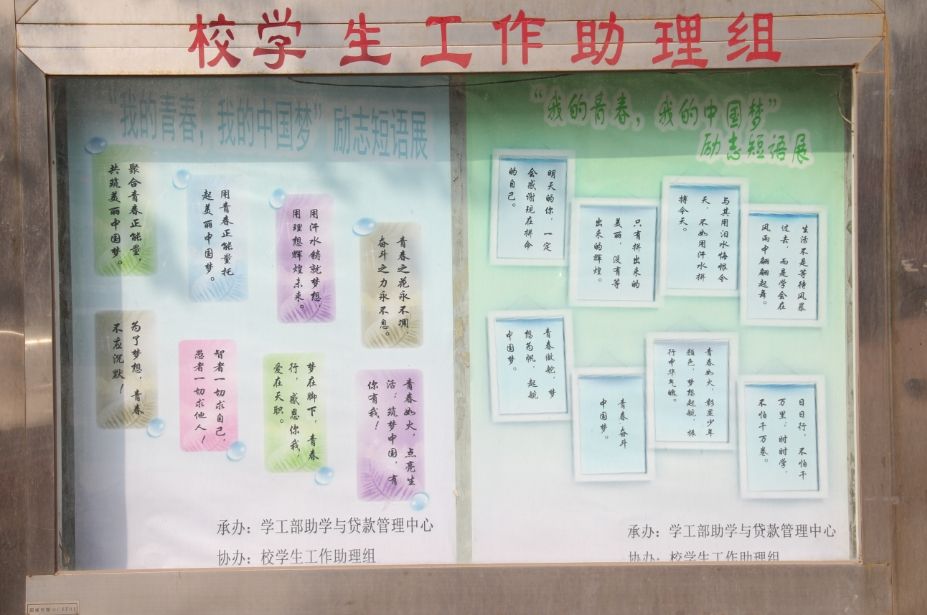 校学生工作助理组
“我的青春，我的中国梦”励志短语展
聚合青春正能量，
共筑美丽中国梦。
用青春正能量托
起美丽中国梦。
用汗水铸就梦想，
用理想辉煌未来。
青春之花永不凋，
奋斗之力永不息。
为了梦想，青春
不应沉默！
智者一切求自己，
愚者一切求他人！
梦在脚下，青春
行，感恩你我，
爱在天职。
青春如火，点亮生
活；筑梦中国，有
你有我！
承办：学工部助学与贷款管理中心
协办：校学生工作助理组
“我的青春，我的中国梦”
励志短语展
明天的你，一定
会感谢现在拼命
的自己。
只有拼出来的
美丽，没有等
出来的辉煌。
与其用泪水悔恨今
天，不如用汗水拼
搏今天。
生活不是等待风暴
过去，而是学会在
风雨中翩翩起舞。
青春做舵，梦
想为帆，起航
中国梦。
青春奋斗
中国梦。
青春如火，彰显少年
颜色，梦想起航，振
行中华气魄。
日日行，不怕千
万里；时时学，
不怕千万卷。
承办：学工部助学与贷款管理中心
协办：校学生工作助理组